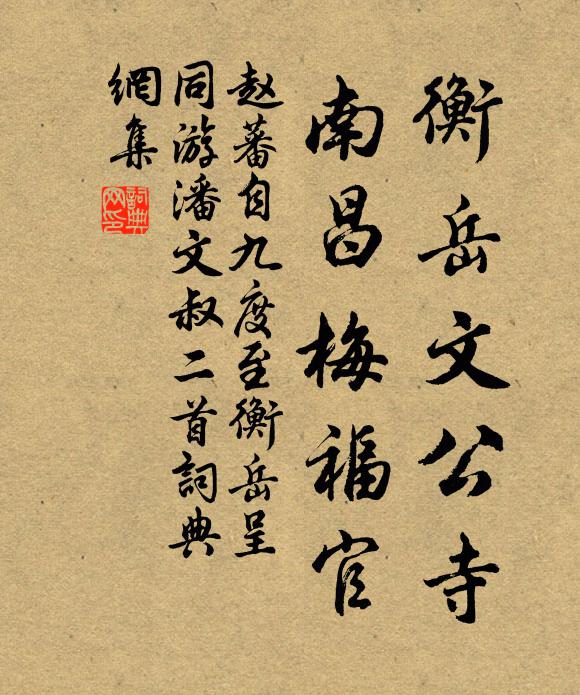 衡岳文公寺
南昌梅福官
赵蕃自九度至衡岳呈
同游潘文叔二首詞典
網集
詞典
网印